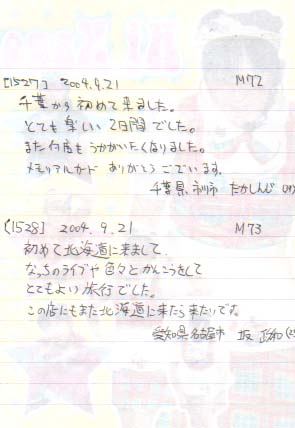 [1527] 2004.9.21 M72
千葉から初めて来ました。
とても楽しい2日間でした。
また何度もうかがいたくなりました。
メモリアルカード ありがとうございます。
千葉県 市川市 たかしんじ
[1528] 2004.9.21 M73
初めて北海道に来まして
なっちのライブや色々とかんこうをして
とてもよい旅行でした。
この店にもまた北海道に来たら来たいです。
愛知県名古屋市